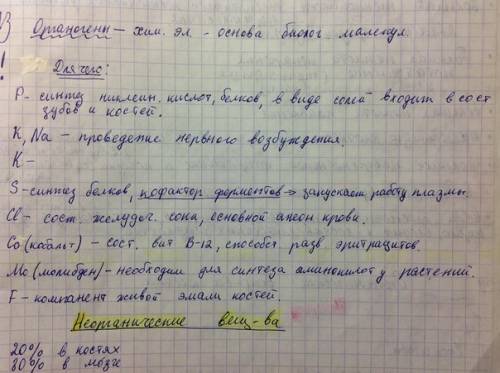 Органогены – хим. эл. - основа биолог. малекул.
! Для чего:
P - синтез нуклеин. кислот, белков, в виде солей входит в сост
зубов и костей.
K, Na – проведение нервного возбуждения.
K –
S - синтез белков, кофактор ферментов → запускает работу плазмы.
Cl - сост. желудоч. сока, основной анеон крови.
Co (кобальт) – сост. вит В-12, способст разв эритрацитов.
Mo (молибден) - необходим для синтеза аминокилот у растений.
F - компанент живой эмали костей.
Неорганические вещ-ва
20% в костях
80% в мозге